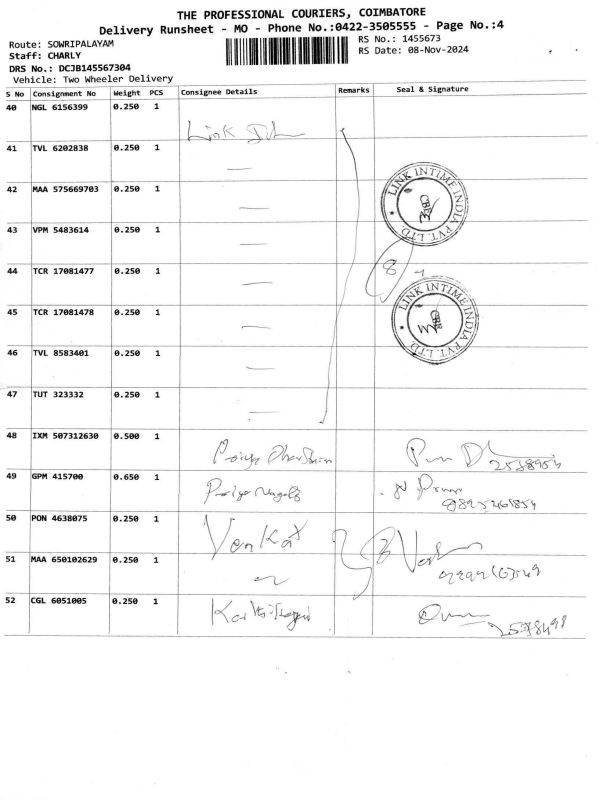 THE PROFESSIONAL COURIERS, COIMBATORE
Delivery Runsheet - MO - Phone No.:0422-3505555 - Page No.:4
Route: SOWRIPALAYAM
RS No.: 1455673
Staff: CHARLY
RS Date: 08-Nov-2024
DRS No.: DCJB145567304
Vehicle: Two Wheeler Delivery
S No Consignment No Weight PCS Consignee Details Remarks Seal & Signature
40 NGL 6156399 0.250 1
Link
41 TVL 6202838 0.250 1
42 MAA 575669703 0.250 1
LINK INTIME INDIA PVT. LTD.
43 VPM 5483614 0.250 1
44 TCR 17081477 0.250 1
8
45 TCR 17081478 0.250 1
LINK INTIME INDIA PVT. LTD.
46 TVL 8583401 0.250 1
47 TUT 323332 0.250 1
48 IXM 507312630 0.500 1
Priya
49 GPM 415700 0.650 1
Priya
50 PON 4638075 0.250 1
Venkat
51 MAA 650102629 0.250 1
52 CGL 6051005 0.250 1